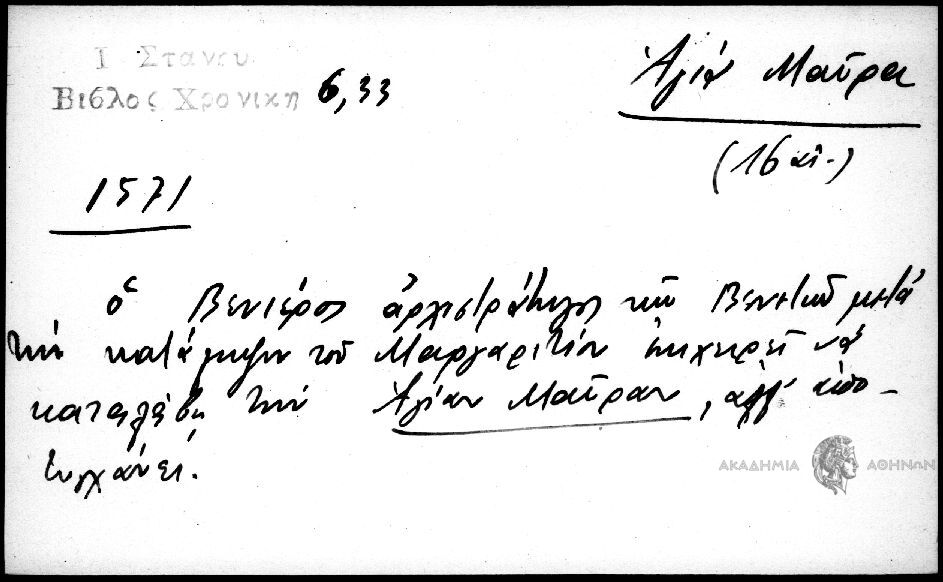 Ι Στανου
Βιβλος Χρονικη 6,33
Ἁγία Μαῦρα
(16 αἰ.)
1571
ὁ Βενιέρος ἀρχιστράτηγος τῶν Βενετῶν μετὰ
τὴν κατάληψιν τοῦ Μαργαριτίου ἐπιχειρεῖ νὰ
καταλάβῃ τὴν Ἁγίαν Μαῦραν, ἀλλ' ἀπο-
τυγχάνει.
ΑΚΑΔΗΜΙΑ ΑΘΗΝΩΝ